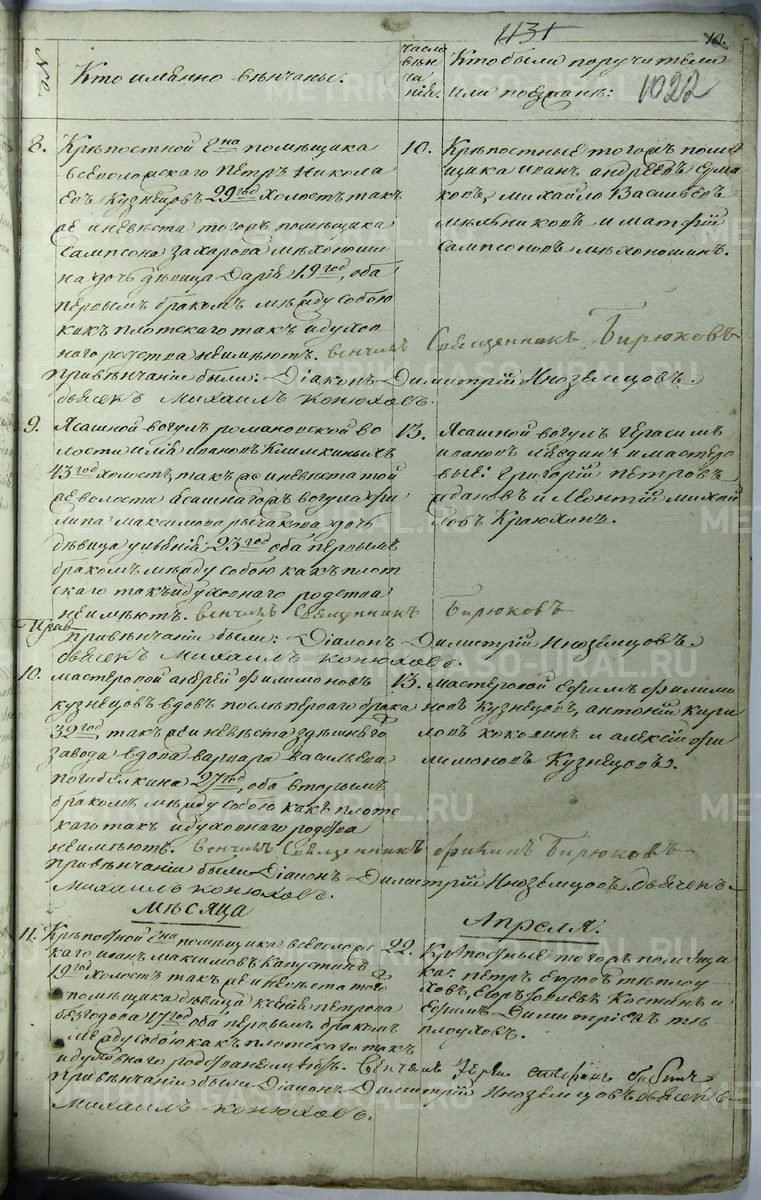 1131
10.
1022
№
Кто имянно вѣнчаны:
числа
вѣн
ча
нія.
Кто были поручители
или поезжанѣ:
8. Крѣпостной Г на помѣщика
всеволожскаго Петръ Никола
евъ Кузнецовъ 29 год холостъ так
же и невѣста тогожъ помѣщика
Сампсона Захарова мѣхоноши
на дочь дѣвица Дарія 19 год, оба
первымъ бракомъ между собою
какъ плотскаго такъ и духов
наго родства неимѣютъ. венчалъ Священникъ Бирюковъ
При вѣнчаніи были: Діаконъ Димитрій Иноземцовъ.
дьячекъ Михаилъ Конюховъ.
10. Крѣпостные тогожъ поме
щика Иванъ Андреевъ
Михайло Васильевъ
Мѣльниковъ и Матфій
Сампсоновъ Мѣхоношинъ.
9. Ясашной вогулъ романовской во
лости Илія Ивановъ Климкиныхъ
43 год холостъ, такъ же и невѣста той
же волости ясашнагожъ вогула Фи
липа Максимова дочь
дѣвица 23 год оба первымъ
бракомъ между собою какъ плот
скаго такъ и духовнаго родства
неимѣютъ. венчалъ Священникъ Бирюковъ
При вѣнчаніи были: Діаконъ Димитрій Иноземцовъ.
дьячекъ Михаилъ Конюховъ.
13. Ясашной вогулъ Герасимъ
Ивановъ и мастеро
вые: Григорій Петровъ
Ждановъ и Леонтій Михай
ловъ Краюхинъ.
10. Мастеровой Андрей Филимоновъ
Кузнецовъ вдовъ послѣ перваго брака
32 год, такъ же и невѣста здѣшняго
завода вдова Варвара Васильева
Погибѣлкина 27 год, оба вторымъ
бракомъ между собою какъ плотс
каго такъ и духовнаго родства
неимѣютъ. Венчалъ Священникъ Фикинъ Бирюковъ
При вѣнчаніи были Діаконъ Димитрій Иноземцовъ. дьячекъ
Михаилъ Конюховъ.
13. Мастеровой Ефимъ Филимо
новъ Кузнецовъ, Антоній Кири
ловъ Коковинъ и Алексій Фи
лимоновъ Кузнецовъ.
Мѣсяца Апреля:
11. Крѣпостной Г на помѣщика Всеволожс
каго Иванъ Максимовъ Капустинъ
19 год холостъ такъ же и невѣста того
помѣщика дѣвица Ксенія Петрова
17 год оба первымъ бракомъ
между собою какъ плотскаго такъ
и духовнаго родства неимѣютъ. Венчалъ Іерей Стефанъ
При вѣнчаніи были Діаконъ Димитрій Иноземцовъ дьячекъ
Михаилъ Конюховъ.
22. Крѣпостные тогожъ помѣщи
ка: Петръ Егоровъ Тѣплоу
ховъ, Егоръ Костинъ и
Ефимъ Димитріевъ Тѣ
плоуховъ.
METRIK.GASO-URAL.RU